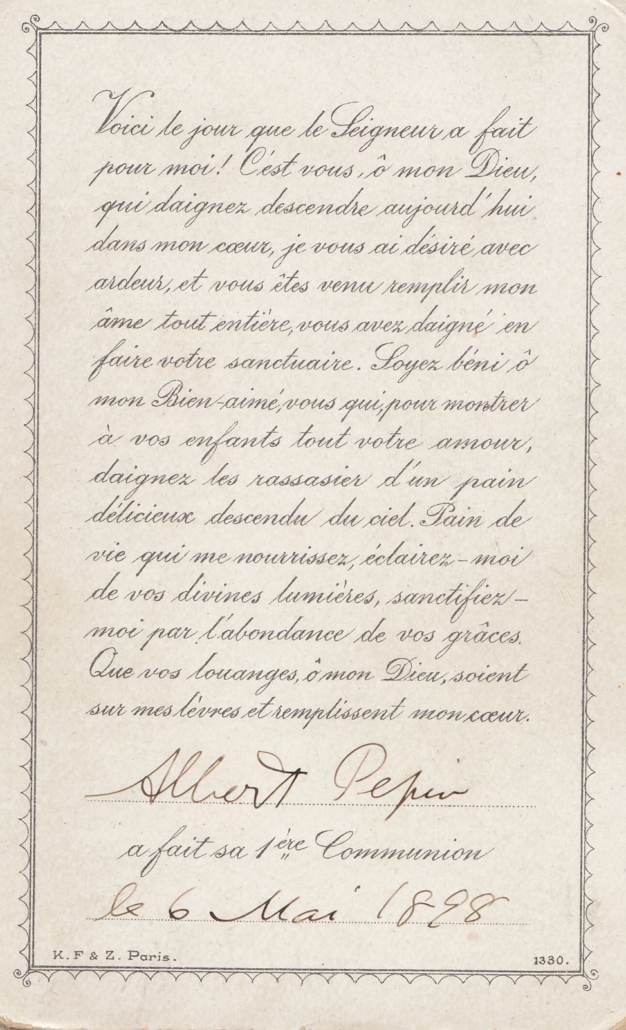 Voici le jour que le Seigneur a fait
pour moi! C'est vous, ô mon Dieu,
qui daignez descendre aujourd'hui
dans mon cœur, je vous ai désiré avec
ardeur, et vous êtes venu remplir mon
âme tout entière, vous avez daigné en
faire votre sanctuaire. Soyez béni ô
mon Bien-aimé, vous qui, pour montrer
à vos enfants tout votre amour,
daignez les rassasier d'un pain
délicieux descendu du ciel. Pain de
vie qui me nourrissez, éclairez-moi
de vos divines lumières, sanctifiez-
moi par l'abondance de vos grâces.
Que vos louanges, ô mon Dieu, soient
sur mes lèvres et remplissent mon cœur.
Albert Pepin
a fait sa 1ère Communion
le 6 Mai 1898
K. F & Z. Paris.
1330.